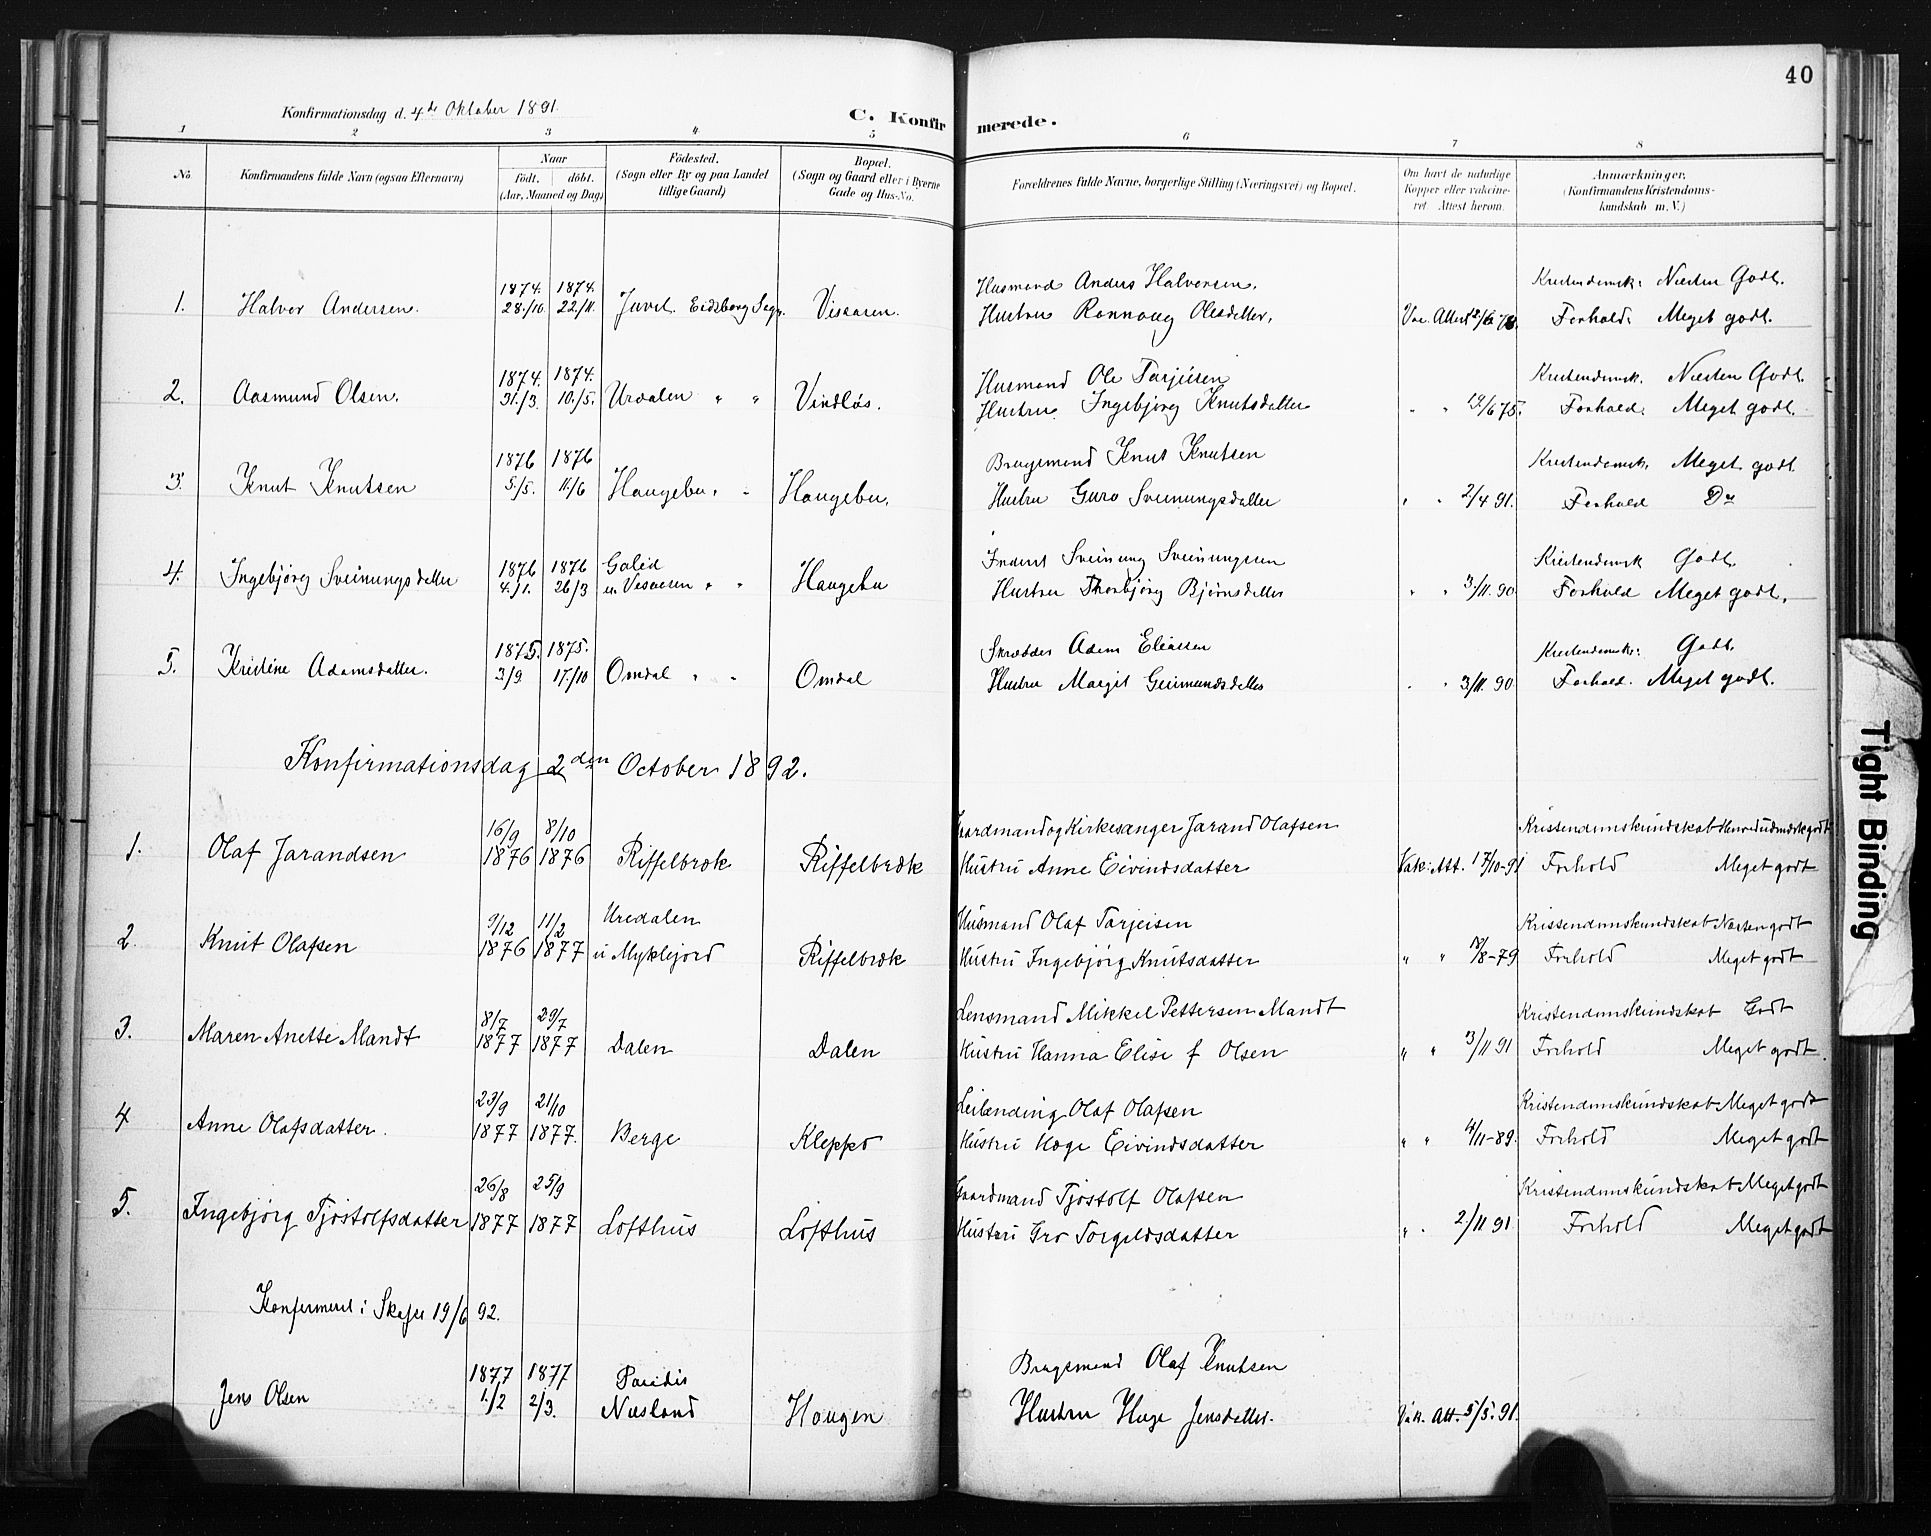 40
Konfirmationsdag d. 4de Oktober 1891.
C. Konfirmerede.
1 2 3 4 5 6 7 8
No. Konfirmandens fulde Navn (ogsaa Efternavn) Naar födt. döbt. (Aar, Maaned og Dag) Födested. (Sogn eller By og paa Landet tillige Gaard) Bopæl. (Sogn og Gaard eller i Byerne Gade og Hus-No. Forældrenes fulde Navne, borgerlige Stilling (Næringsvei) og Bopæl. Om havt de naturlige Kopper eller vakcineret Attest herom. Anmærkninger. (Konfirmandens Kristendomskundskab m. V.)
1874. 1874. Husmand Anders Halvorsen. Kristendomsk: Næsten Godt.
1. Halvor Andersen. 28/10. 22/11. Juvet. Eidsborg Sogn. Visaaren. Hustru Rannoug Olesdatter, Vac. Attest Forhold: Meget godt.
1874. 1874. Husmand Ole Tarjeisen Kristendomsk. Næsten Godt.
2. Aasmund Olsen. 31/3. 10/5. Uredalen " " Vindlös. Hustru Ingebjörg Knutsdatter " " 19/6 75. Forhold. Meget godt.
1876 1876 Brugsmand Knut Knutsen Kristendomsk. Meget godt
3. Knut Knutsen 5/5. 11/6 Haugebu " " Haugebu. Hustru Guro Sveinungsdatter " " 2/4 91. Forhold Do
1876 1876 Galid Inderst Sveinung Sveinungsen Kristendomsk Godt.
4. Ingebjörg Sveinungsdatter 4/1. 26/3 u. Visaaren " " Haugebu Hustru Thorbjörg Björnsdatter " " 3/11. 90 Forhold Meget godt.
1875. 1875. Skrædder Adam Eliassen Kristendomsk: Godt.
5. Kristine Adamsdatter. 3/9 17/10 Omdal " " Omdal Hustru Margit Geirmundsdatter " " 3/11. 90 Forhold. Meget godt.
Konfirmationsdag 2den October 1892.
16/9 8/10 Gaardmand og Kirkesanger Jarand Olafsen Kristendomskundskab
1. Olaf Jarandsen 1876 1876 Riffelbræk Riffelbræk Hustru Anne Eivindsdatter Vak: Att. 17/10-91 Forhold Meget godt
9/12 11/2 Uredalen Husmand Olaf Tarjeisen Kristendomskundskab Næsten godt
2. Knut Olafsen 1876 1877 u Myklejord Riffelbræk Hustru Ingebjörg Knutsdatter " " /8-79 Forhold Meget godt
8/7 29/7 Lensmand Mikkel Pettersen Mandt Kristendomskundskab Godt
3. Maren Anette Mandt 1877 1877 Dalen Dalen Hustru Hanna Elise f Olsen " " 3/11 91 Forhold Meget godt.
23/9 21/10 Leilænding Olaf Olafsen Kristendomskundskab Meget godt
4 Anne Olafsdatter. 1877 1877. Berge Kleppo Hustru Hæge Eivindsdatter " " 4/11-89. Forhold Meget godt
26/8 25/9 Gaardmand Tjöstolf Olafsen Kristendomskundskab Meget godt
5. Ingebjörg Tjöstolfsdatter 1877 1877 Lofthus Lofthus Hustru Gro Torgeldsdatter " . 2/11 91. Forhold Meget godt
Konfirmeret i Skafse 19/6 92.
1877 1877 Brugsmand Olaf Knutsen
Jens Olsen 1/2 2/3. Næsland Haugen Hustru Hæge Jensdatter. Vak. Att. 5/5. 91.
Tight Binding